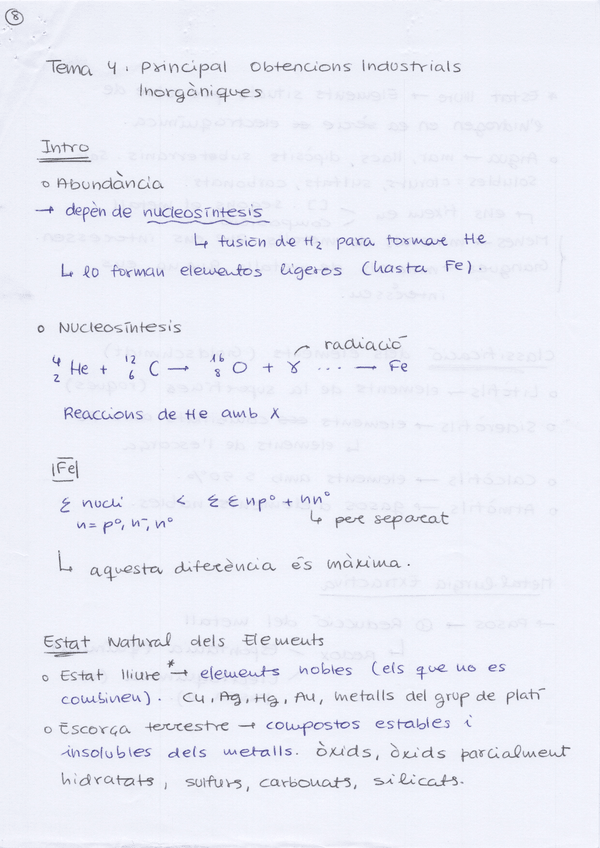 8
Tema 4. Principal Obtencions Industrials
Inorgàniques
Intro
o Abundància
→ depèn de nucleosíntesis
↳ fusión de H₂ para formar He
↳ lo forman elementos ligeros (hasta Fe).
o Nucleosíntesis
radiació
⁴₂He + ¹²₆C → ¹⁶₈O + γ ... → Fe
Reaccions de He amb X
|Fe|
Σ nucli < Σ E np° + nn°
n = p°, n⁻, n° ↳ per separat
↳ aquesta diferència és màxima.
Estat Natural dels Elements
o Estat lliure *→ elements nobles (els que no es
combinen). Cu, Ag, Hg, Au, metalls del grup de platí
o Escorça terrestre → compostos estables i
insolubles dels metalls. òxids, òxids parcialment
hidratats, sulfurs, carbonats, silicats.